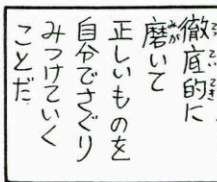 徹底的に
磨いて
正しいものを
自分でさぐり
みつけていく
ことだ